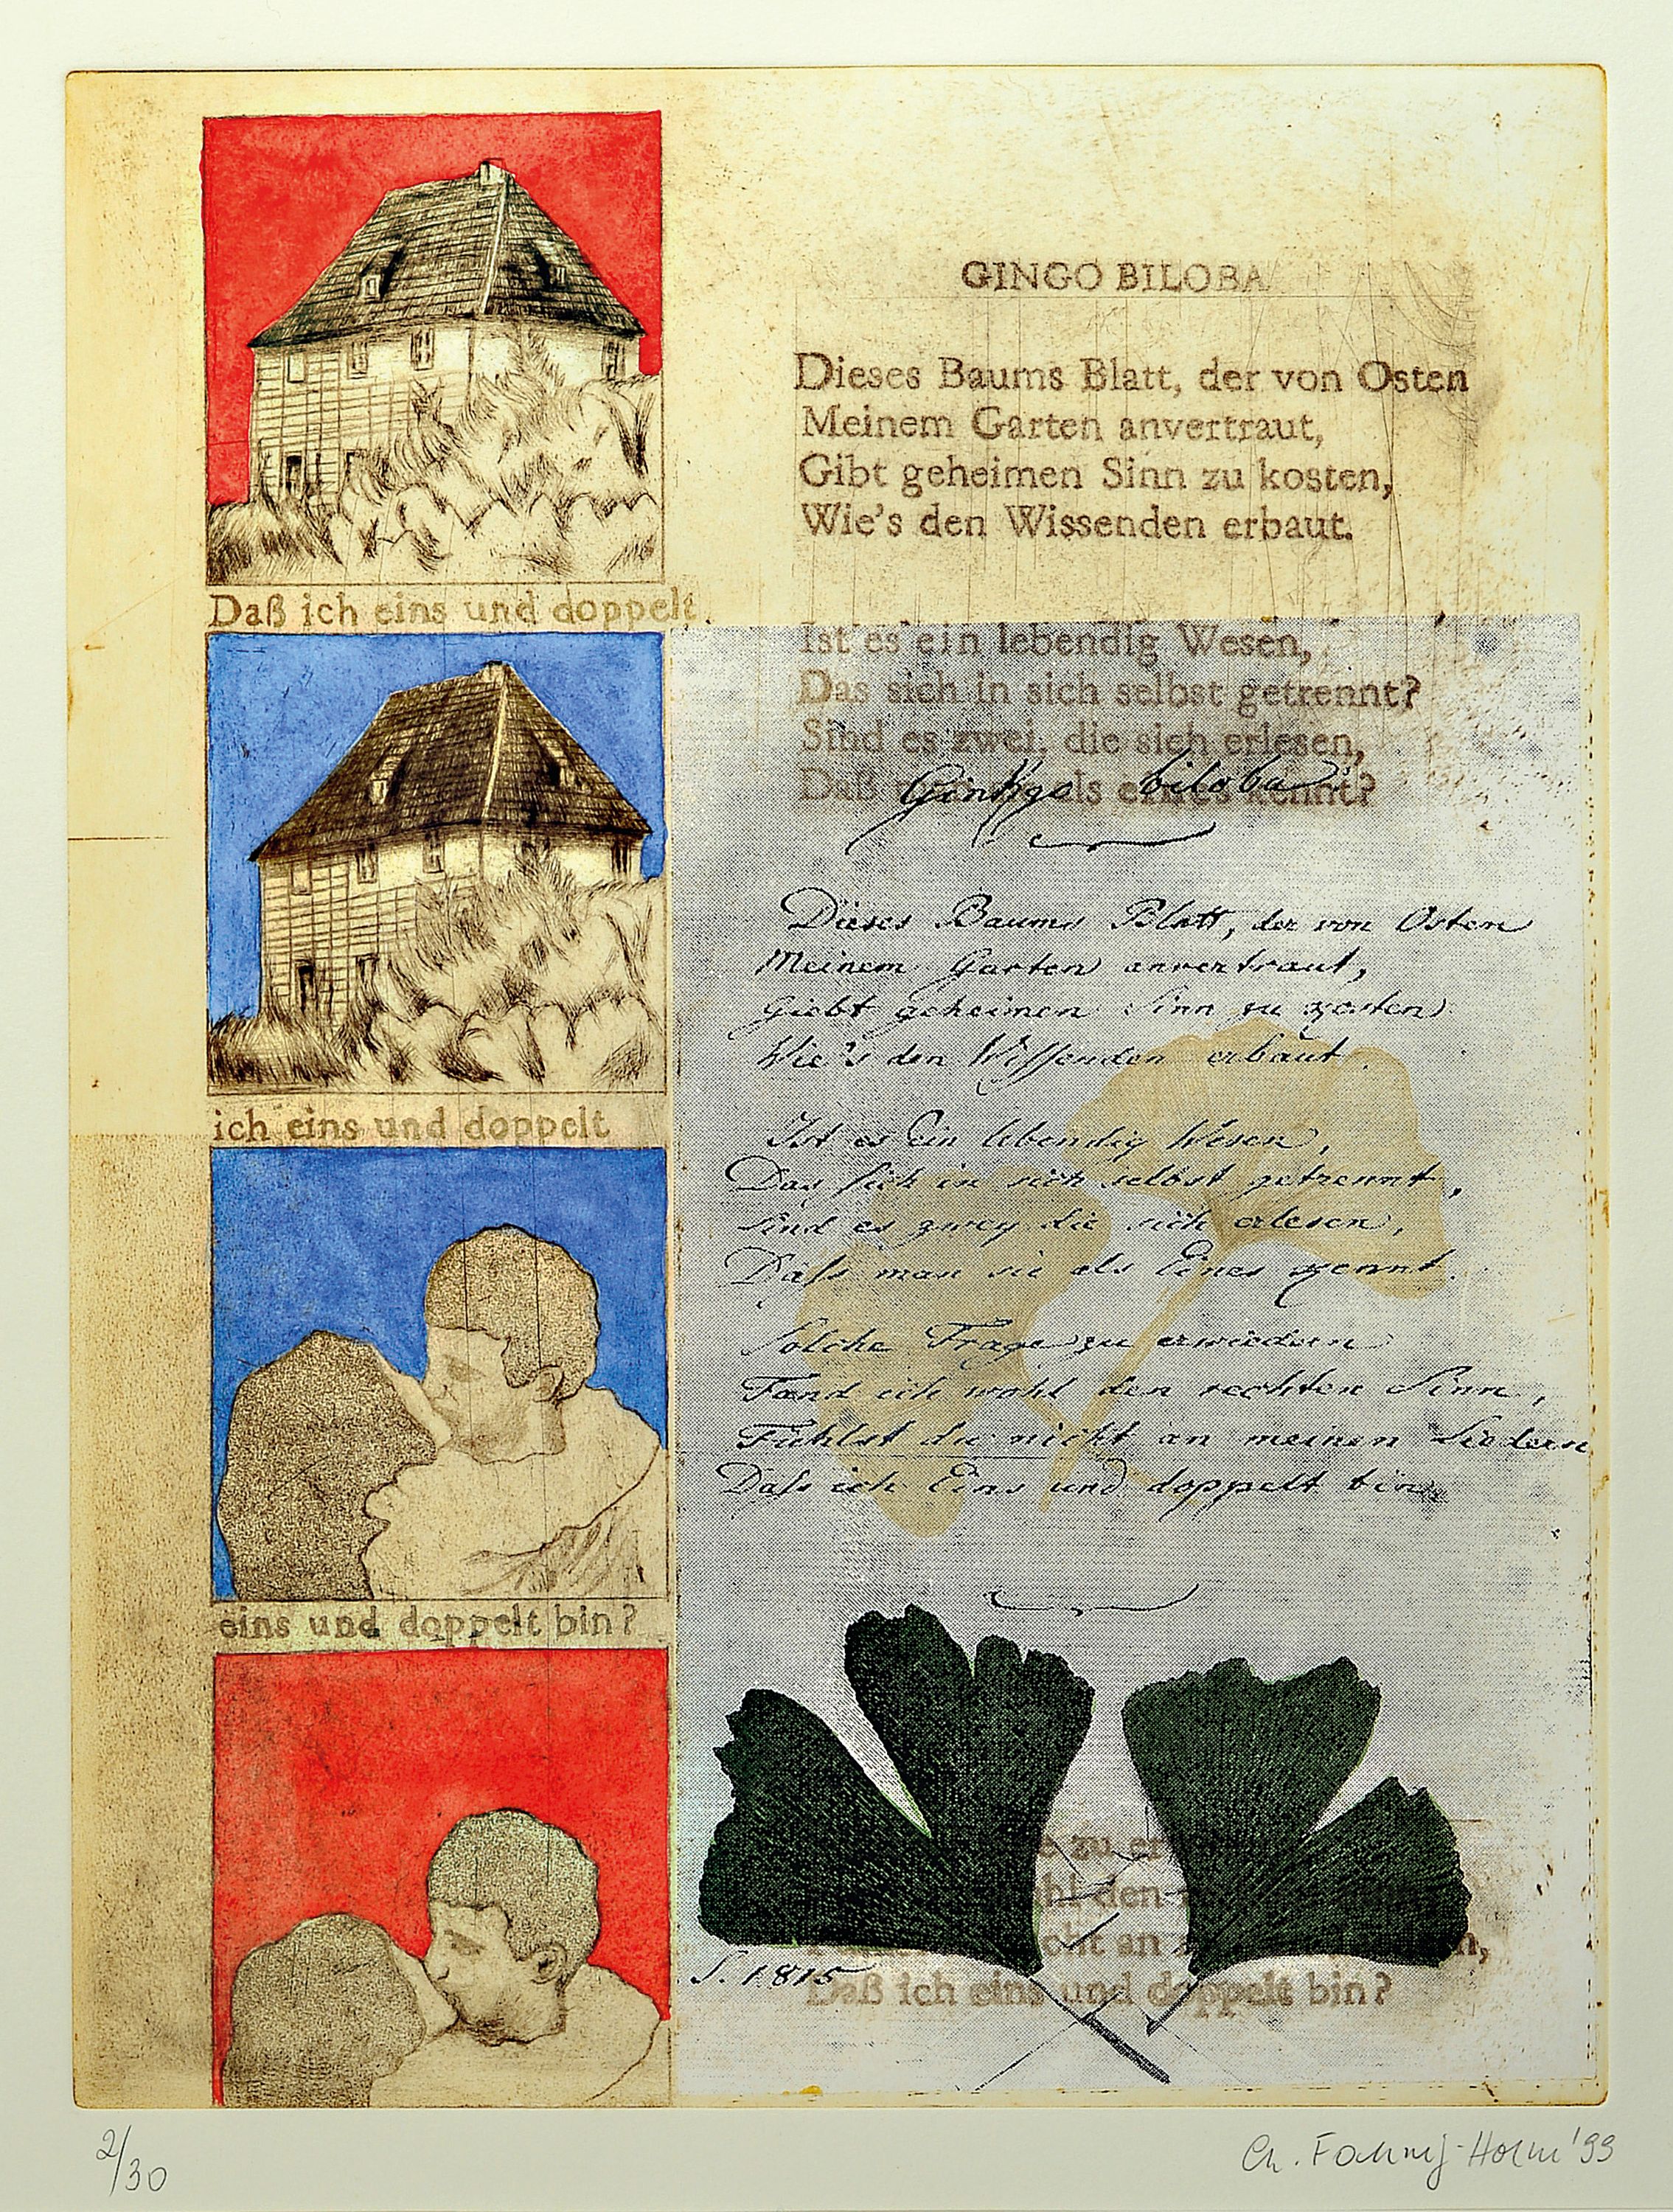 GINGO BILOBA
Dieses Baums Blatt, der von Osten
Meinem Garten anvertraut,
Gibt geheimen Sinn zu kosten,
Wie's den Wissenden erbaut.
Daß ich eins und doppelt
Ist es ein lebendig Wesen,
Das sich in sich selbst getrennt?
Sind es zwei, die sich erlesen,
Daß als eines kennt?
Ginkgo biloba
Dieses Baums Blatt, der von Osten
Meinem Garten anvertraut,
Giebt geheimen Sinn zu kosten
Wie's den Wissenden erbaut.
ich eins und doppelt
Ist es Ein lebendig Wesen,
Das sich in sich selbst getrennt,
Sind es zwey die sich erlesen,
Dass man sie als Eines kennt.
Solche Frage zu erwiedern
Fand ich wohl den rechten Sinn,
Fühlst du nicht an meinen Liedern
Dass ich Eins und doppelt bin.
eins und doppelt bin?
zu
den
an
S. 1815
Daß ich eins und doppelt bin?
2/30
Ch. '99